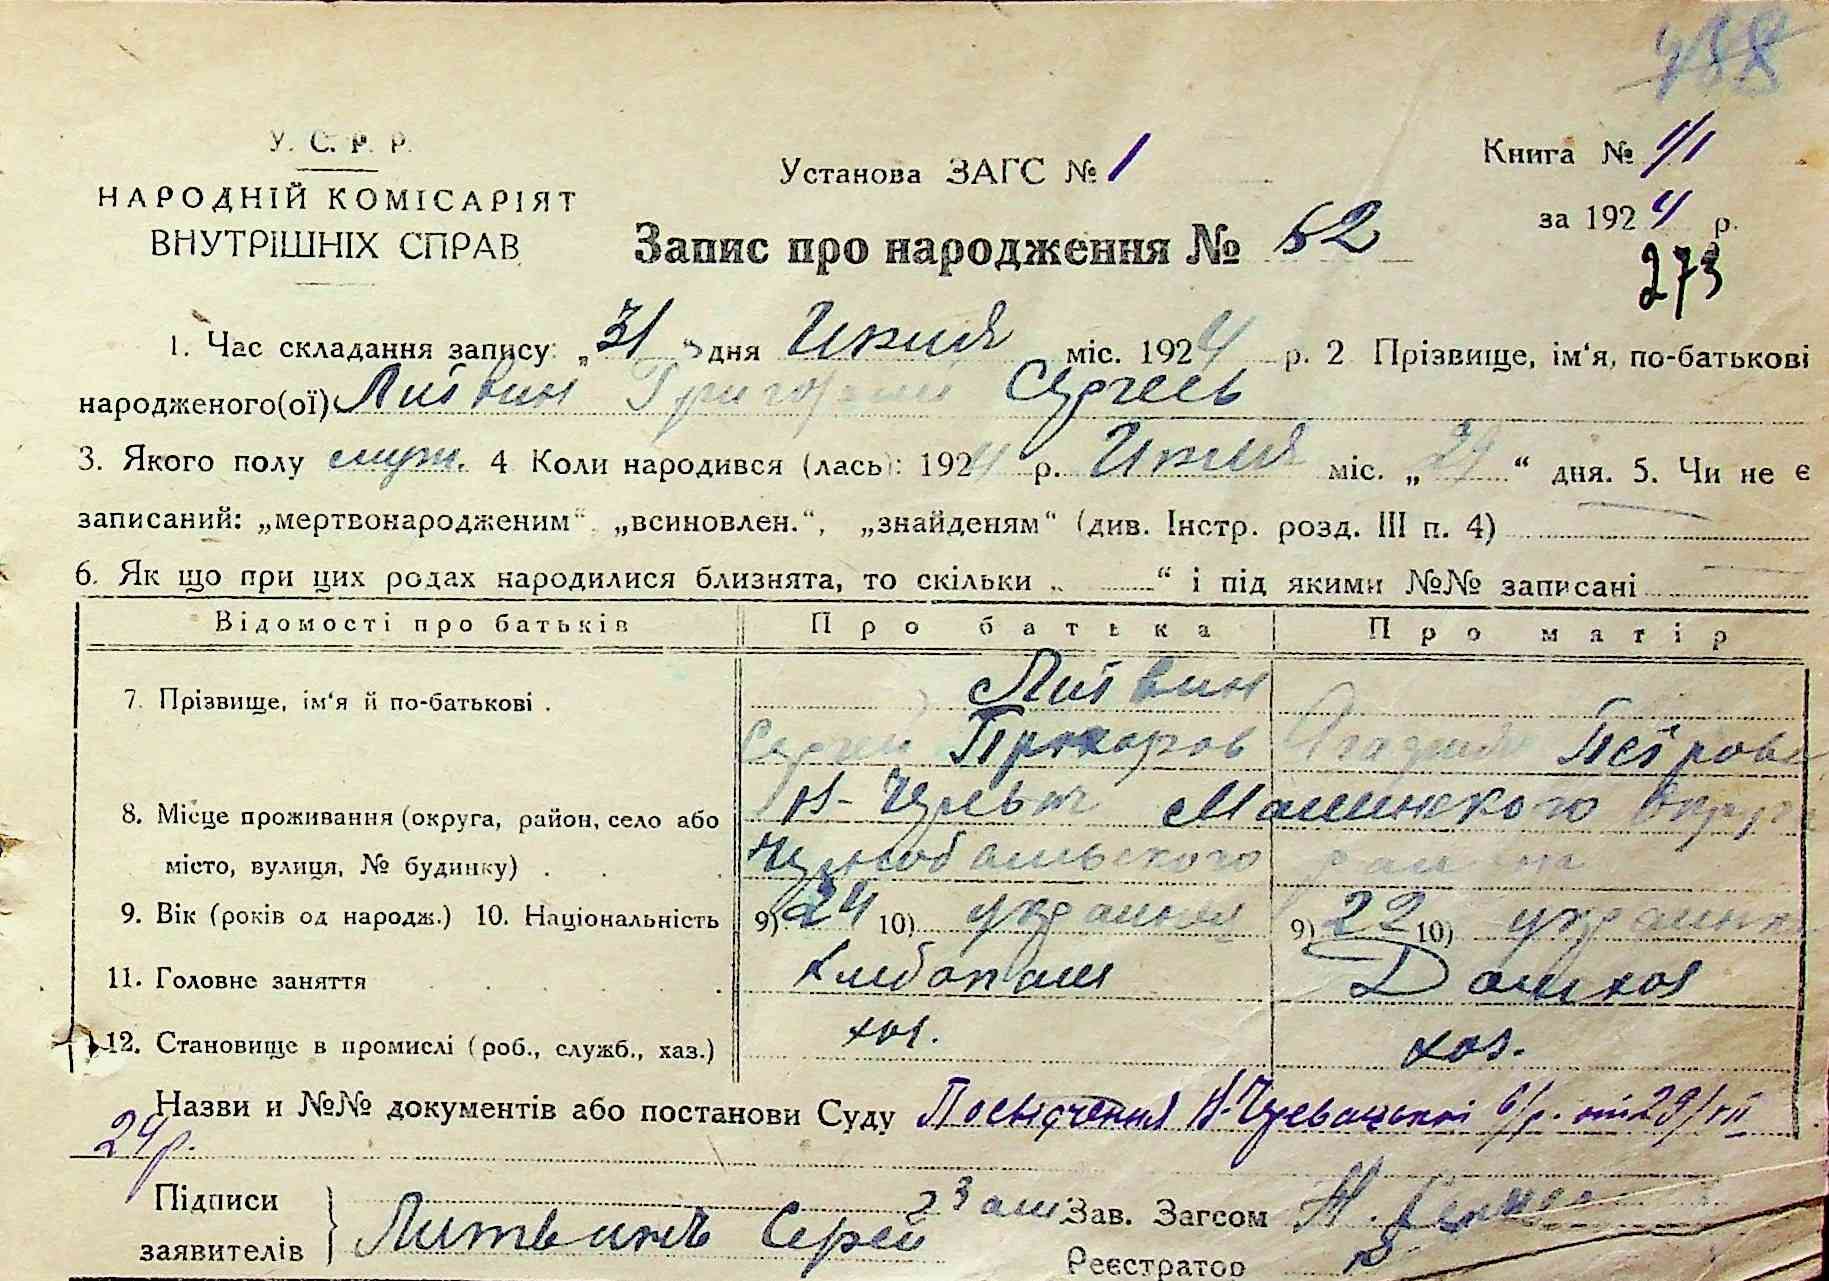 488
У. С. Р. Р.
НАРОДНІЙ КОМІСАРІЯТ
ВНУТРІШНІХ СПРАВ
Установа ЗАГС № 1
Книга №
за 1924 р.
273
Запис про народження № 52
1. Час складання запису: „31“ дня Июля міс. 1924 р. 2 Прізвище, ім‘я, по-батькові
народженого(ої) Литвин Григорий Сергеев
3. Якого полу муж. 4 Коли народився (лась): 1924 р. Июля міс. „29“ дня. 5. Чи не є
записаний: „мертвонародженим“ „всиновлен.“, „знайденям“ (див. Інстр. розд. III п. 4)
6. Як що при цих родах народилися близнята, то скільки „ “ і під якими №№ записані
Відомості про батьків Про батька Про матір
7. Прізвище, ім‘я й по-батькові . Литвин
Сергей Прохоров Петрова
8. Місце проживання (округа, район, село або
місто, вулиця, № будинку) . . .
района
9. Вік (років од народж.) 10. Національність 9) 24 10) украинец 9) 22 10) украинка
11. Головне заняття . . . . . хлебопаш Домхоз
12. Становище в промислі (роб., служб., хаз.) хоз. хоз.
Назви и №№ документів або постанови Суду Посвідчення від 29/VII
24 р.
Підписи
заявителів } Литвинъ Сергей
Зав. Загсом
Реєстратор